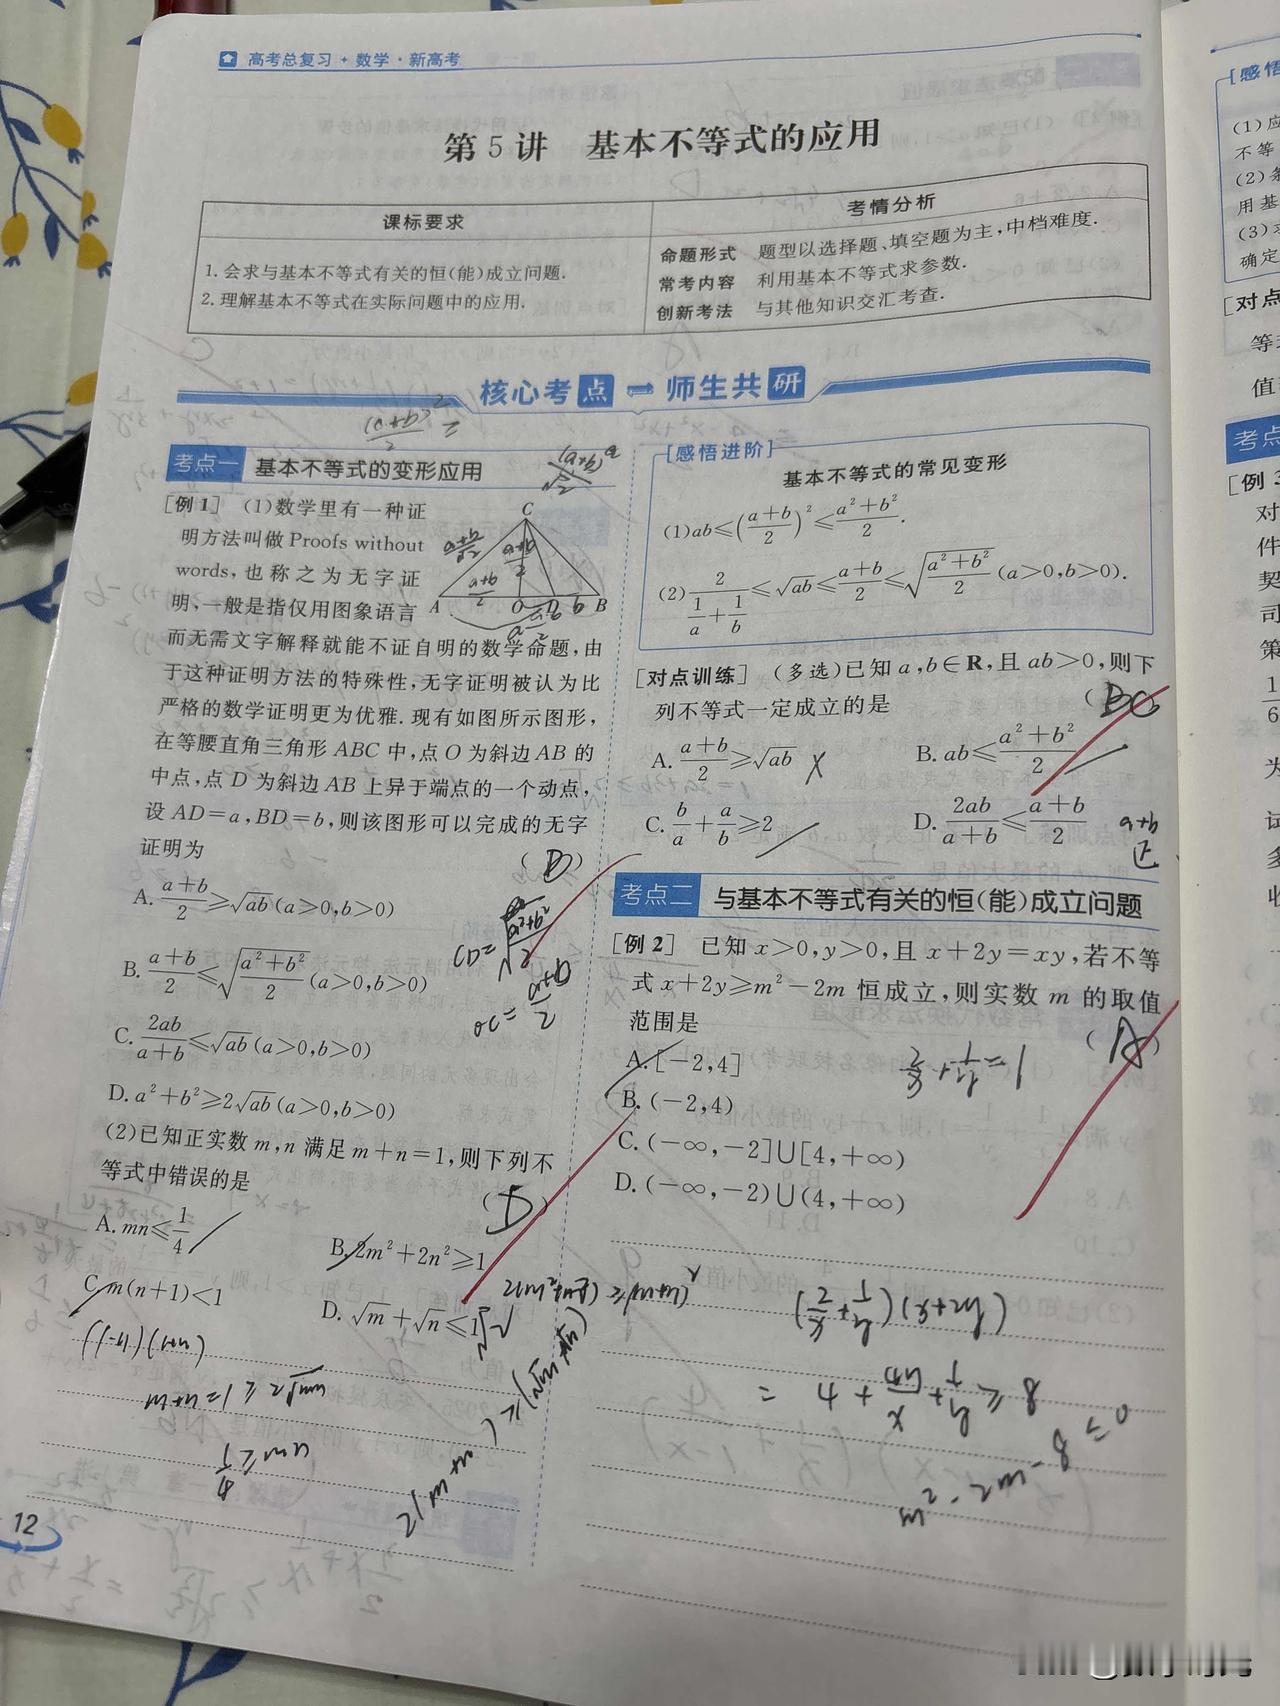 高考总复习 + 数学·新高考
第5讲 基本不等式的应用
课标要求
1. 会求与基本不等式有关的恒(能)成立问题.
2. 理解基本不等式在实际问题中的应用.
考情分析
命题形式 题型以选择题、填空题为主,中档难度.
常考内容 利用基本不等式求参数.
创新考法 与其他知识交汇考查.
核心考点 师生共研
考点一 基本不等式的变形应用
[例1] (1)数学里有一种证
明方法叫做 Proofs without
words,也称之为无字证
明,一般是指仅用图象语言
而无需文字解释就能不证自明的数学命题,由
于这种证明方法的特殊性,无字证明被认为比
严格的数学证明更为优雅. 现有如图所示图形,
在等腰直角三角形 ABC 中,点 O 为斜边 AB 的
中点,点 D 为斜边 AB 上异于端点的一个动点,
设 AD=a,BD=b,则该图形可以完成的无字
证明为 (D)
C
A O D b B
A. (a+b)/2≥√(ab)(a>0,b>0)
B. (a+b)/2≤√((a²+b²)/2)(a>0,b>0)
C. 2ab/(a+b)≤√(ab)(a>0,b>0)
D. a²+b²≥2√(ab)(a>0,b>0)
CD=√((a²+b²)/2)
OC=(a+b)/2
(2)已知正实数 m,n 满足 m+n=1,则下列不
等式中错误的是 (D)
A. mn≤1/4
B. 2m²+2n²≥1
C. m(n+1)<1
D. √m+√n≤1
m+n=1≥2√mn
1/4≥mn
12
[感悟进阶]
基本不等式的常见变形
(1)ab≤((a+b)/2)²≤(a²+b²)/2.
(2)2/(1/a+1/b)≤√(ab)≤(a+b)/2≤√((a²+b²)/2)(a>0,b>0).
[对点训练] (多选)已知 a,b∈R,且 ab>0,则下
列不等式一定成立的是 (BC)
A. (a+b)/2≥√(ab) X
B. ab≤(a²+b²)/2
C. b/a+a/b≥2
D. 2ab/(a+b)≤(a+b)/2
a+b
正
考点二 与基本不等式有关的恒(能)成立问题
[例2] 已知 x>0,y>0,且 x+2y=xy,若不等
式 x+2y≥m²-2m 恒成立,则实数 m 的取值
范围是 (A)
A. [-2,4]
B. (-2,4)
C. (-∞,-2]∪[4,+∞)
D. (-∞,-2)∪(4,+∞)
m²-2m-8≤0
[感悟
(1)应
不等
(2)条
用基
确定
[对点
等式
值
考点
[例3
对
件
契
司
策
1/6
为